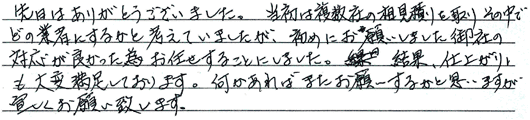 先日はありがとうございました。 当初は複数社の相見積りを取り その中で
どの業者にするかと考えていましたが、初めにお願いしました御社の
対応が良かった為 お任せすることにしました。 結果、仕上がり
も大変満足しております。何かあればまたお願いするかと思いますが
宜しくお願い致します。